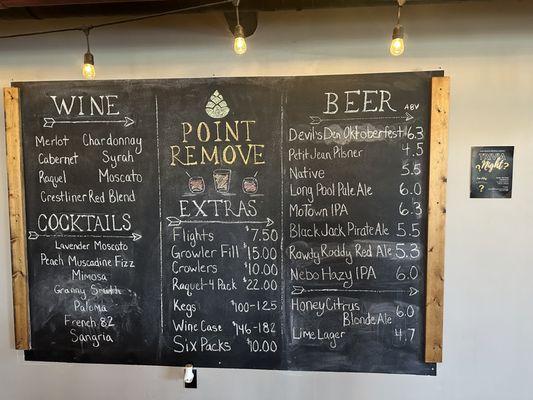 WINE
Merlot Chardonnay
Cabernet Syrah
Raquel Moscato
Crestliner Red Blend
COCKTAILS
Lavender Moscato
Peach Muscadine Fizz
Mimosa
Granny Smith
Paloma
French 82
Sangria
POINT
REMOVE
EXTRAS
Flights $7.50
Growler Fill $15.00
Crowlers $10.00
Raquel-4 Pack $22.00
Kegs $100-125
Wine Case $146-182
Six Packs $10.00
BEER ABV
Devil's Den Oktoberfest 6.3
Petit Jean Pilsner 4.5
Native 5.5
Long Pool Pale Ale 6.0
MoTown IPA 6.3
Black Jack Pirate Ale 5.5
Rowdy Roddy Red Ale 5.3
Nebo Hazy IPA 6.0
Honey Citrus
Blonde Ale 6.0
Lime Lager 4.7
TRIVIA
Night?
?